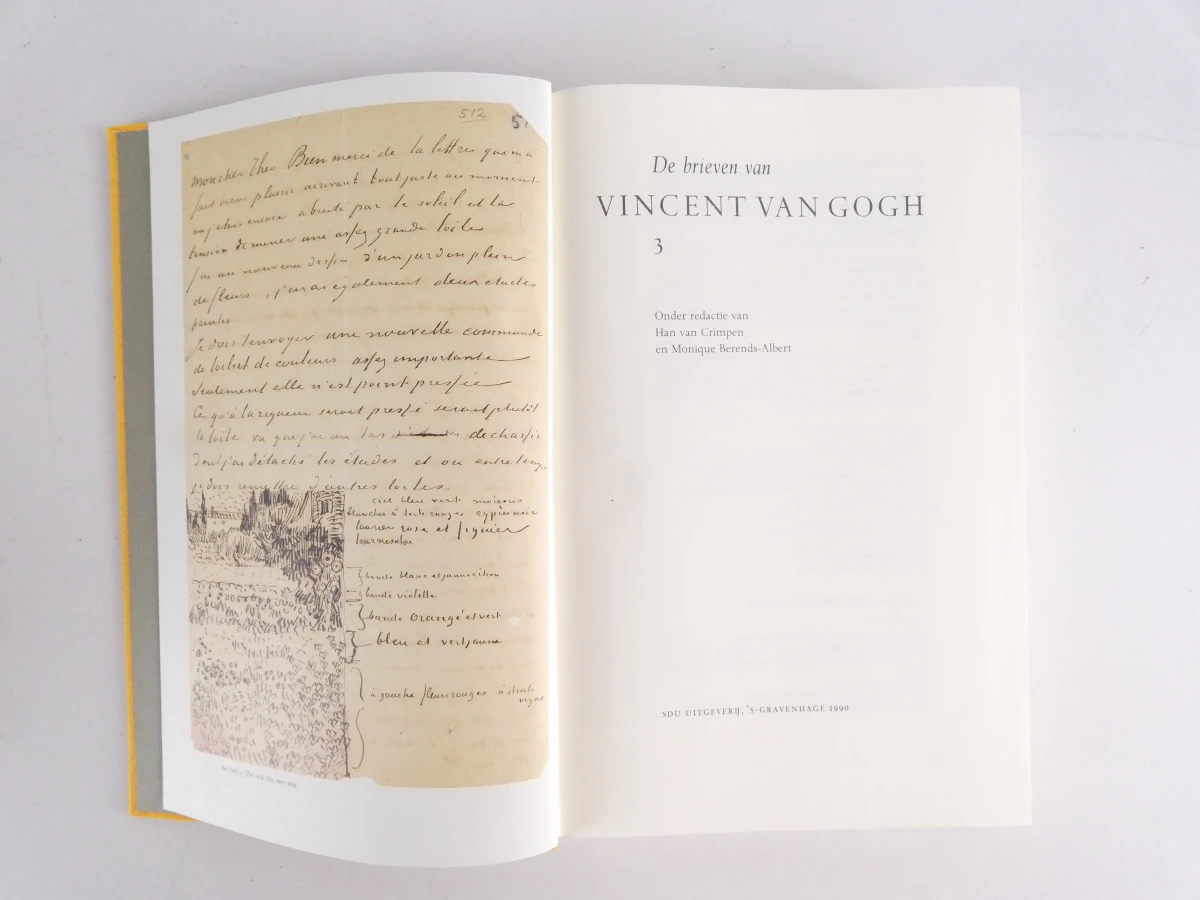 512
51
mon cher Theo Bien merci de ta lettre qui m'a
fait bien plaisir arrivant tout juste au moment
ou j'etais encore abruti par le soleil et la
tension de mener une assez grande toile
J'ai un nouveau dessin d'un jardin plein
de fleurs, j'en ai également deux etudes
peintes
Je dois t'envoyer une nouvelle commande
de toile et de couleurs assez importante
Seulement elle n'est point pressée
Ce qu'à la rigueur serait pressé serait plutôt
la toile vu que j'ai un tas de chassis
dont j'ai détaché les études et ou entre temps
je dois remettre d'autres toiles.
ciel bleu vert maisons
blanches à toits rouges cyprès
laurier rose et figuier
tournesols
bande blanc et jaune citron
bande violette
bande orangé et vert
bleu et vert jaune
a gauche fleurs rouges à droite
vignes
De brieven van
VINCENT VAN GOGH
3
Onder redactie van
Han van Crimpen
en Monique Berends-Albert
SDU UITGEVERIJ, 'S-GRAVENHAGE 1990